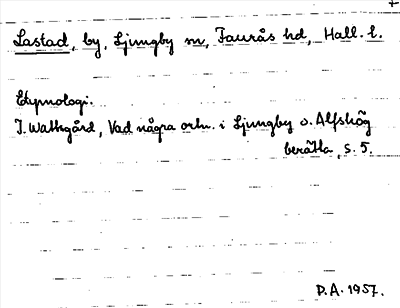 Lastad, by, Ljungby sn, Faurås hd, Hall. l.
Etymologi.
J. Wattsgård, Vad några ortn. i Ljungby o. Alfshög
berätta, s. 5.
D.A. 1957.